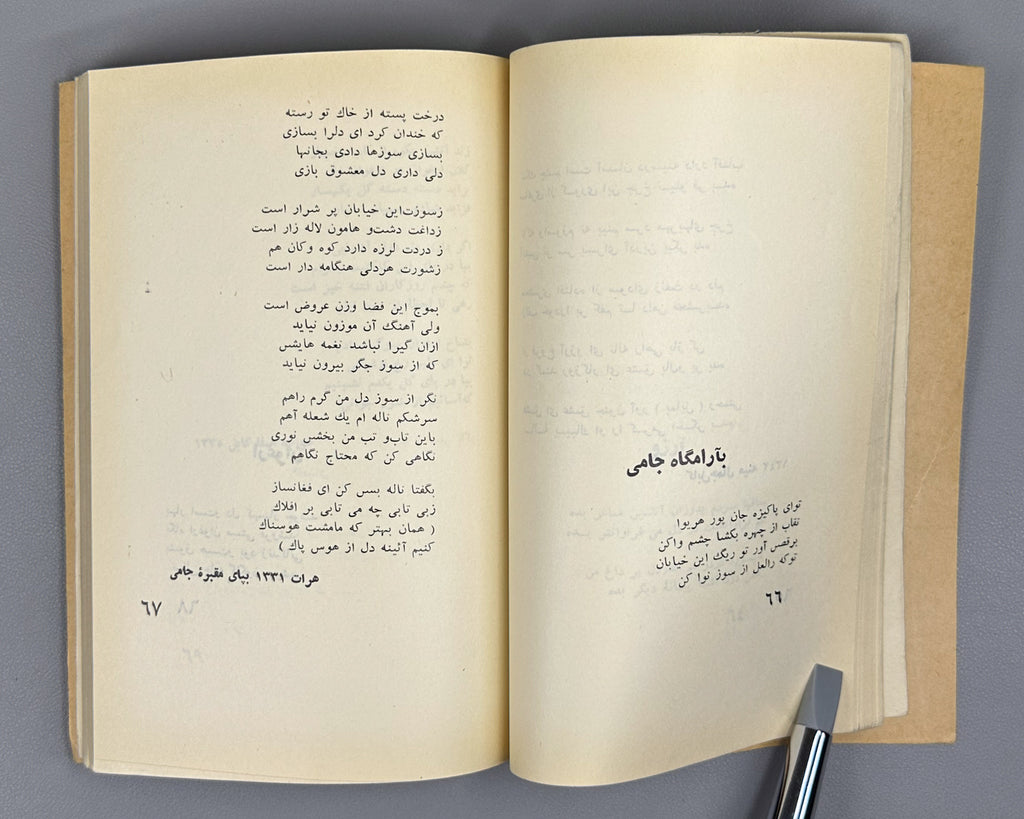 بآرامگاه جامی
توای پاکیزه جان پور هریوا
نقاب از چهره بکشا چشم واکن
برقص آور تو ریگ این خیابان
توکه رالعل از سوز نوا کن
٦٦
درخت پسته از خاك تو رسته
که خندان کرد ای دلرا بسازی
بسازی سوزها دادی بجانها
دلی داری دل معشوق بازی
زسوزت‌این خیابان پر شرار است
زداغت دشت‌و هامون لاله زار است
ز دردت لرزه دارد کوه وکان هم
زشورت هردلی هنگامه دار است
بموج این فضا وزن عروض است
ولی آهنگ آن موزون نیاید
ازان گیرا نباشد نغمه هایش
که از سوز جگر بیرون نیاید
نگر از سوز دل من گرم راهم
سرشکم ناله ام یك شعله آهم
باین تاب‌و تب من بخشس نوری
نگاهی کن که محتاج نگاهم
بگفتا ناله بسس کن ای فغانساز
زبی تابی چه می تابی بر افلاك
( همان بهتر که مامشت هوسناك
کنیم آئینه دل از هوس پاك )
هرات ١٣٣١ بپای مقبرۀ جامی
٦٧